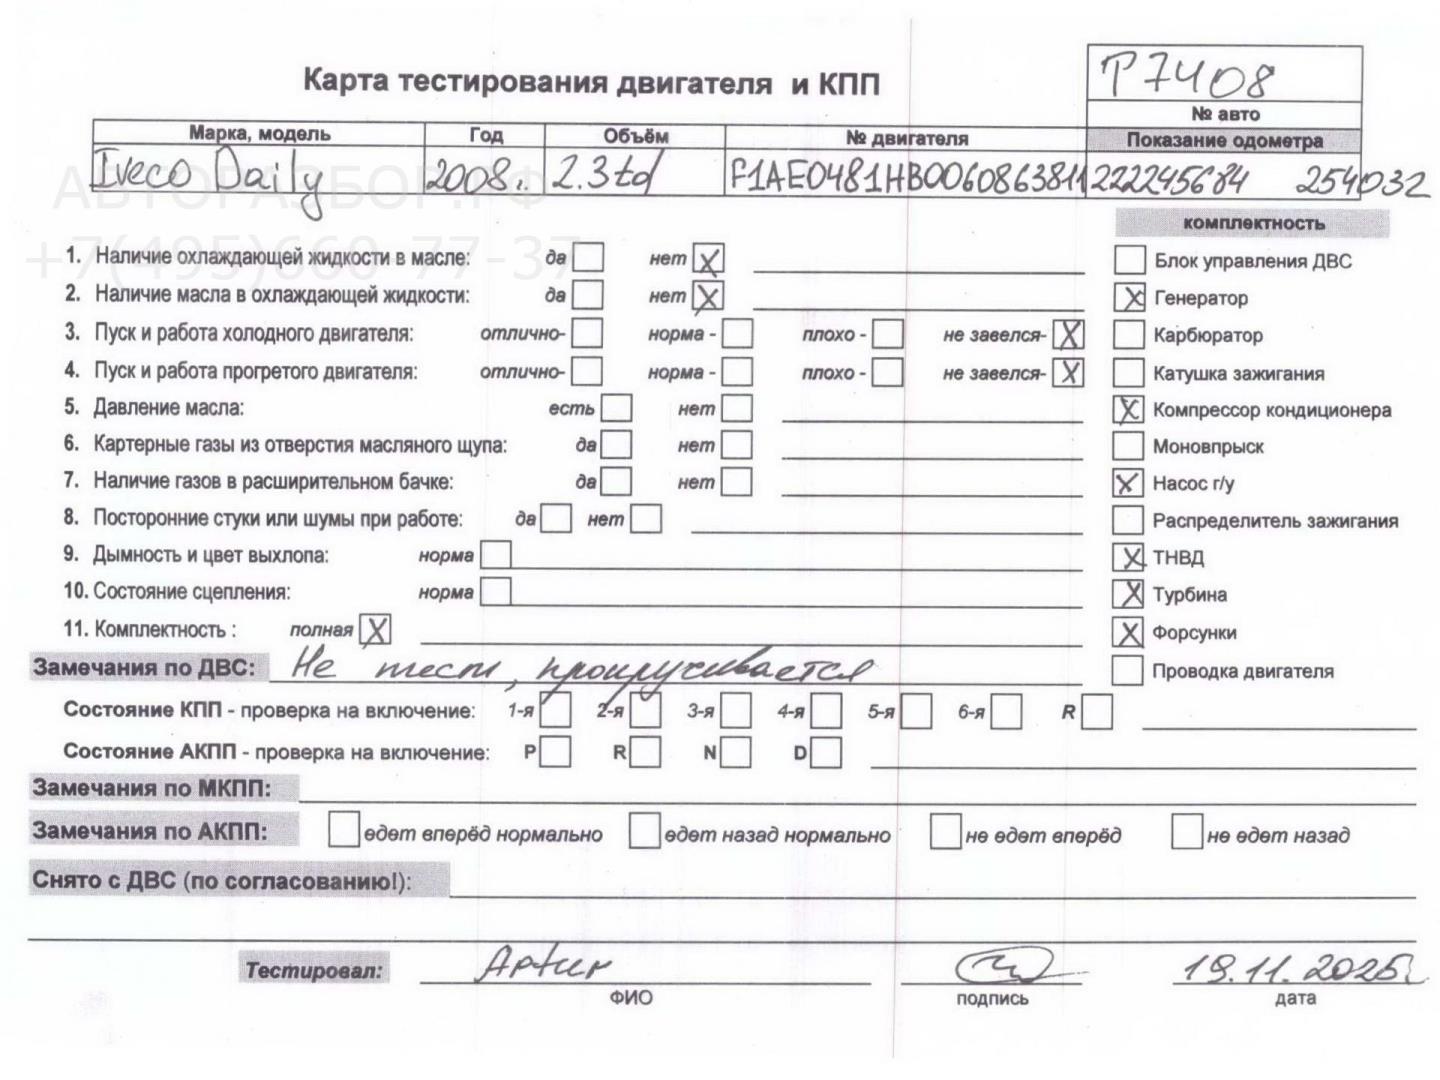 Карта тестирования двигателя и КПП
P7408
№ авто
Марка, модель Год Объём № двигателя Показание одометра
Iveco Daily 2008г. 2.3td F1AE0481HB0060863811 222245684 254032
АВТОРАЗБОР.РФ
+7(495)660-77-37
комплектность
1. Наличие охлаждающей жидкости в масле: да нет X
Блок управления ДВС
2. Наличие масла в охлаждающей жидкости: да нет X
X Генератор
3. Пуск и работа холодного двигателя: отлично- норма - плохо - не завелся- X
Карбюратор
4. Пуск и работа прогретого двигателя: отлично- норма - плохо - не завелся- X
Катушка зажигания
5. Давление масла: есть нет
X Компрессор кондиционера
6. Картерные газы из отверстия масляного щупа: да нет
Моновпрыск
7. Наличие газов в расширительном бачке: да нет
X Насос г/у
8. Посторонние стуки или шумы при работе: да нет
Распределитель зажигания
9. Дымность и цвет выхлопа: норма
X ТНВД
10. Состояние сцепления: норма
X Турбина
11. Комплектность : полная X
X Форсунки
Замечания по ДВС: Не тест, прокручивается
Проводка двигателя
Состояние КПП - проверка на включение: 1-я 2-я 3-я 4-я 5-я 6-я R
Состояние АКПП - проверка на включение: P R N D
Замечания по МКПП:
Замечания по АКПП: едет вперёд нормально едет назад нормально не едет вперёд не едет назад
Снято с ДВС (по согласованию!):
Тестировал: Артур 19.11.2025г.
ФИО подпись дата